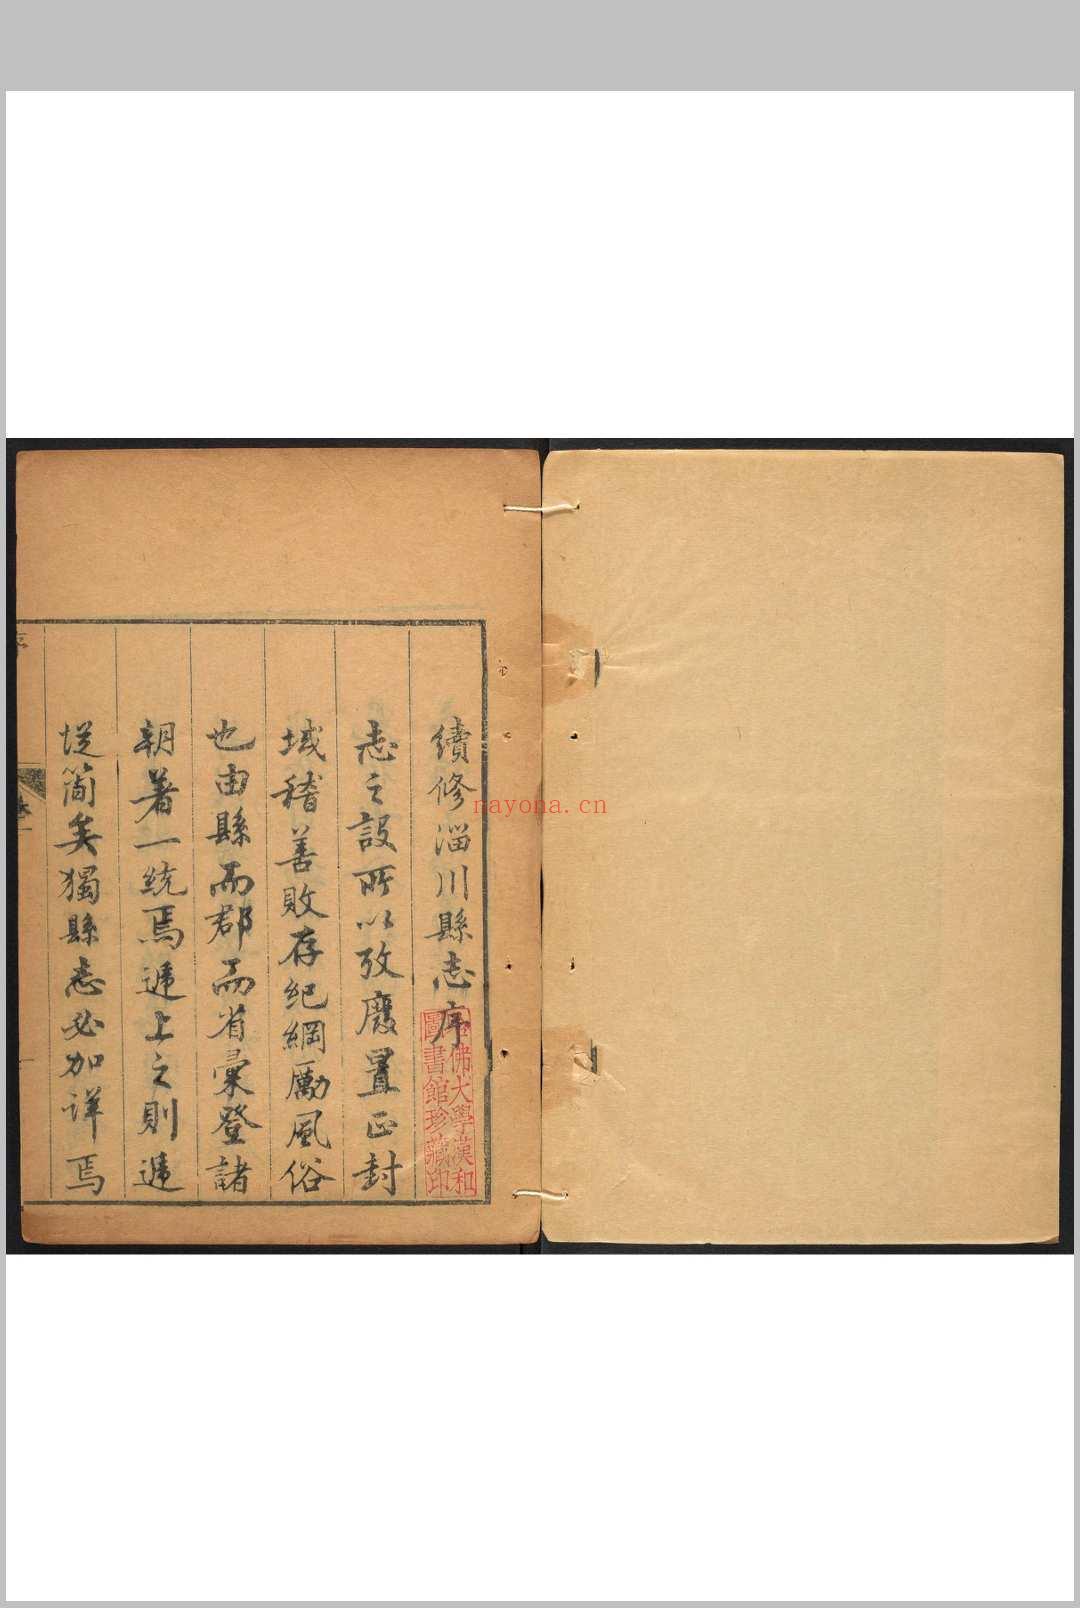 續修淄川縣志序
志之設所以攷廢置正封
域稽善敗存紀綱厲風俗
也由縣而郡而省彙登諸
朝著一統焉遞上之則遞
從簡矣獨縣志必加詳焉
佛大學漢和
圖書館珍藏印
nayona.cn